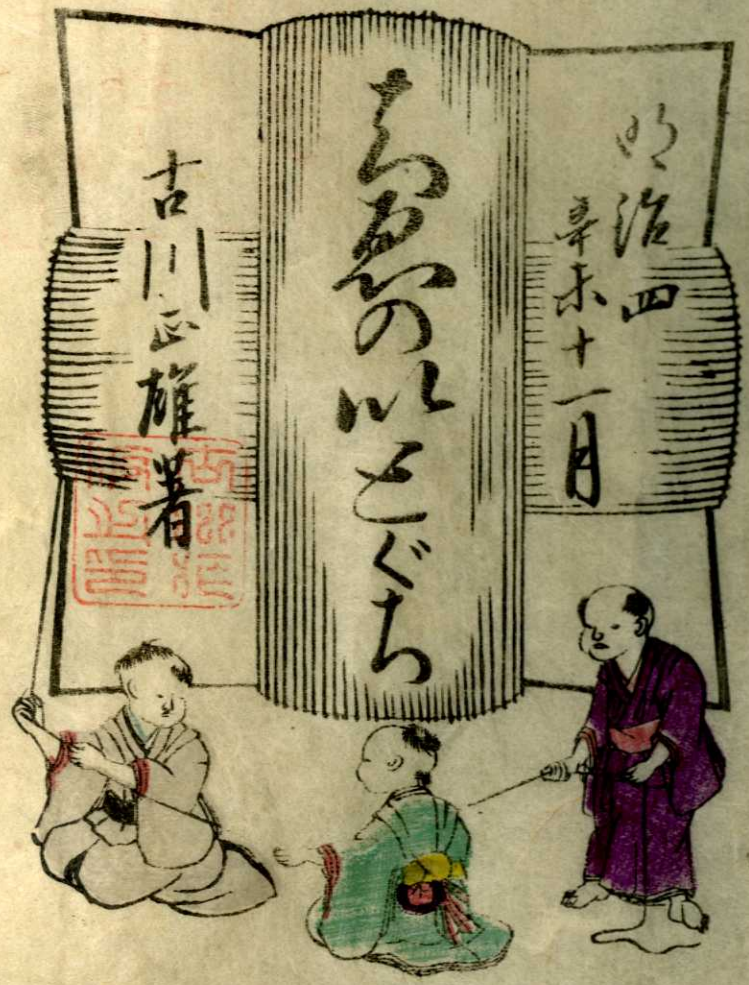 明治四
辛未十一月
ちゑのいとぐち
古川正雄著